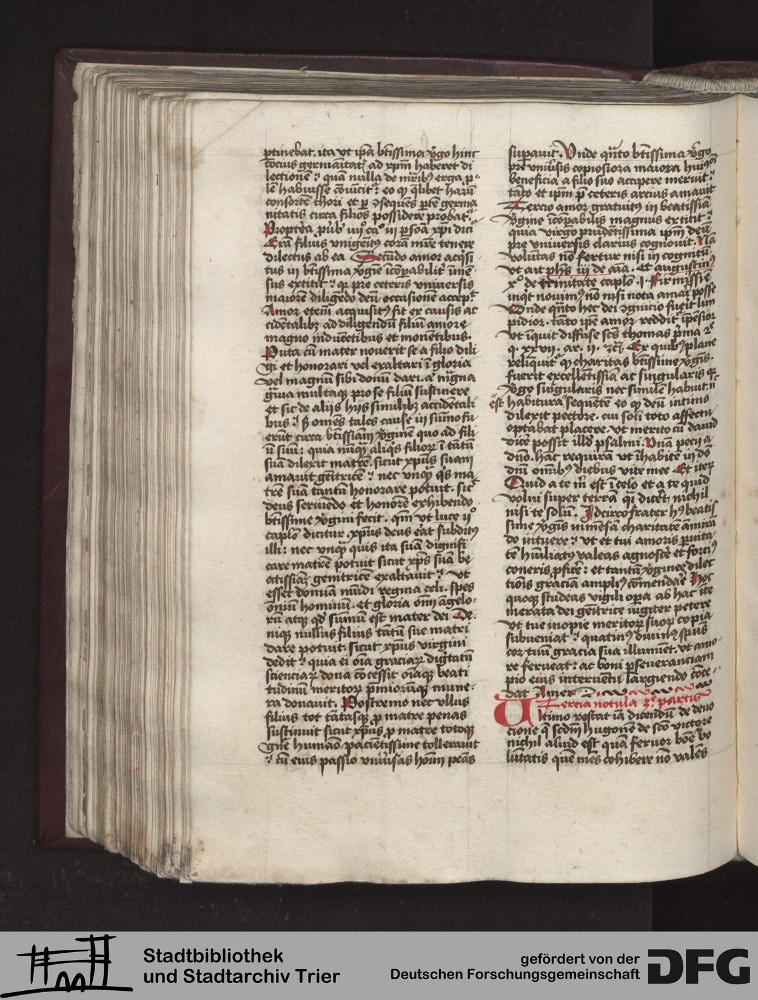 ptinebat. ita vt ipa btissima vgo hinc
tocius germanitat ad xpm haberet di
lectione quā nulla de mribus erga p
le habuisse convicit eo quilibet harū
consorte thori et p dsequēs pte germa
nitatis circa filios possidere probat
Proptea pūb iiii ca iii in psōa xpi dici
Erā filius vnigenitus corā mre tenere
dilectus ab ea Secūdo amor acqsi
tus in btissima vgine icōpabilit imē
sus extitit qr pre ceteris vniuersis
maiorē diligēdo deū occasione accep
Amor etem acquisitus fit ex causis ac
cidētalibz ad diligendū filiū amore
magno inducētibus et monētibus
Puta cū mater nouerit se a filio dili
gi et honorari vel exaltari i gloria
vel magnū sibi donū dari. a
gūia multaqz pro se filiū sustinere
et sic de alijs hijs similibz accidētali
bus. S omēs tales cause in sūmo fu
erūt circa btissiam vginē quo ad fili
ū suū. quia nūqz aliqs filiorz i tātū
suā dilexit matrē. sicut xpus suam
amauit genitricē nec vnqz qs ma
trē suā tantū honorare potuit. sic
deus seruiēdo et honorē exhibendo
btissime vgini fecit. qm vt luce ii
caplo dicitur xpus deus erat subditus
illi. nec vnqz quis ita suā dignifi
care matrē potuit sicut xps suā be
atissiā genitricē exaltauit. Vt
esset domina mūdi regina celi. spes
oīniū hominū. et gloria oīm āgelo
rū atqz qd sūmū est mater dei De
niqz nullus filius tātū sue matri
dare potuit. sicut xpus virgini
dedit. quia ei oīa graciarz dignitatū
scienciarz dona cōcessit oīaqz beati
tudinū meritorz pmiorūqz mune
ra donauit. Postremo nec vllus
filius tot tātasqz p matre penas
sustinuit sicut xpus. p matre totoqz
gne humāo paciētissime tollerauit
cū eius passio vniūsas hoīm penas
supauit. Vnde quito btissima vgo
pre vniūsis copiosiora maiora
beneficia a filio suo accipere meruit
tāto et ipm p ceteris arcius amauit
Tercio amor gratuitus in beatissia
vgine icōpabilis magnus extitit
quia virgo prudētissima ipm deū
pre vniuersis clarius cognouit. Nā
volūtas nō fertur nisi in cognitū
vt ait phs iii de aīa. Et augustinus
x de trinitate caplo i.
inqt nouimus nō nisi nota amari posse
Vnde quito hec dei agnicio fuerit lim
pidior. tāto ipe amor reddit ipensior
vt iquit diffuse scts thomas pma 2e
q. xxvii. ar. ii. Ex quibus plane
relīquit qz charitas btissime vgis
fuerit excellētissia ac singularis qz
vgo singularis nec simile habuit
est habitura sequētē eo qz deū intimo
dilexit pectore. cui soli toto affectu
optabat placere. vt merito cū dauid
dicē possit illd psalmi. Vnā pecij a
dno. hāc requirā vt ihabitē in do
dni omībus diebus vite mee Et iterz
Quid a te m est i celo et a te quid
volui super terrā qi dicet nichil
nisi te solū. Idcirco frater
sime vgis mmēsā charitatē āmirā
do intuere. vt et tui amoris puita
tē hūiliatus valeas agnoscē et forcius
coneris pficē. et tantū vginee dilec
tiōis graciā amplius cōmendare Nec
quoqz studeas vigili opa ab hac ite
merata dei genitrice iugiter petere
vt tue inopie meritorz suorz copia
subueniat. quatinus diuinus spūs
cor tuū gracia sua illuminet. vt amo
re ferueat. ac boni pseueranciam
pio eius interuētu largiendo cōce
dat Amen
Tercia notula 2e partis
Ultimo restat iā dicendū de deuo
cione q scdm hugonē de scto victore
nichil aliud est quā feruor bōe vo
lūtatis quē mēs cohibere nō valēs
Stadtbibliothek
und Stadtarchiv Trier
gefördert von der
Deutschen Forschungsgemeinschaft
DFG